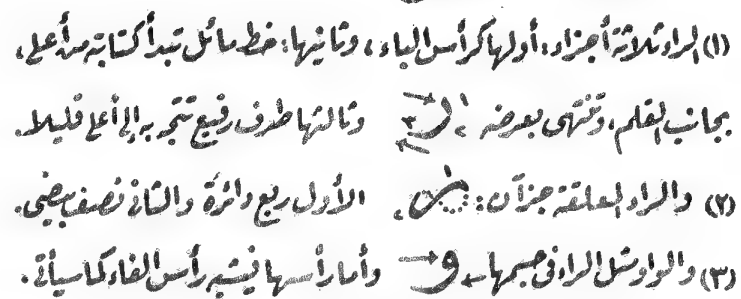 (١) الراء ثلاثة أجزاء: أولها كرأس الباء، وثانيها: خط مائل تبدأ كتابته من أعلى،
بجانب القلم، وتنتهى بعرضه وثالثها طرف رفيع تتجه به إلى أعلى قليلا.
(٢) والراء المعلقة جزآن: الأول ربع دائرة والثانى نصف بيضى.
(٣) والواو مثل الراء فى جسمها وأما رأسها فيشبه رأس الفاء كما سيأتى.